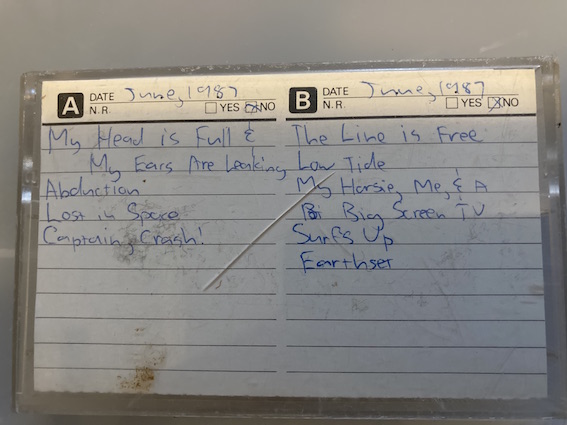 A DATE June, 1987
N.R. YES NO
My Head is Full &
My Ears Are Leaking
Abduction
Lost in Space
Captain, Crash!
B DATE June, 1987
N.R. YES NO
The Line is Free
Low Tide
My Horsie, Me, & A
Bi Big Screen TV
Surf's Up
Earthset